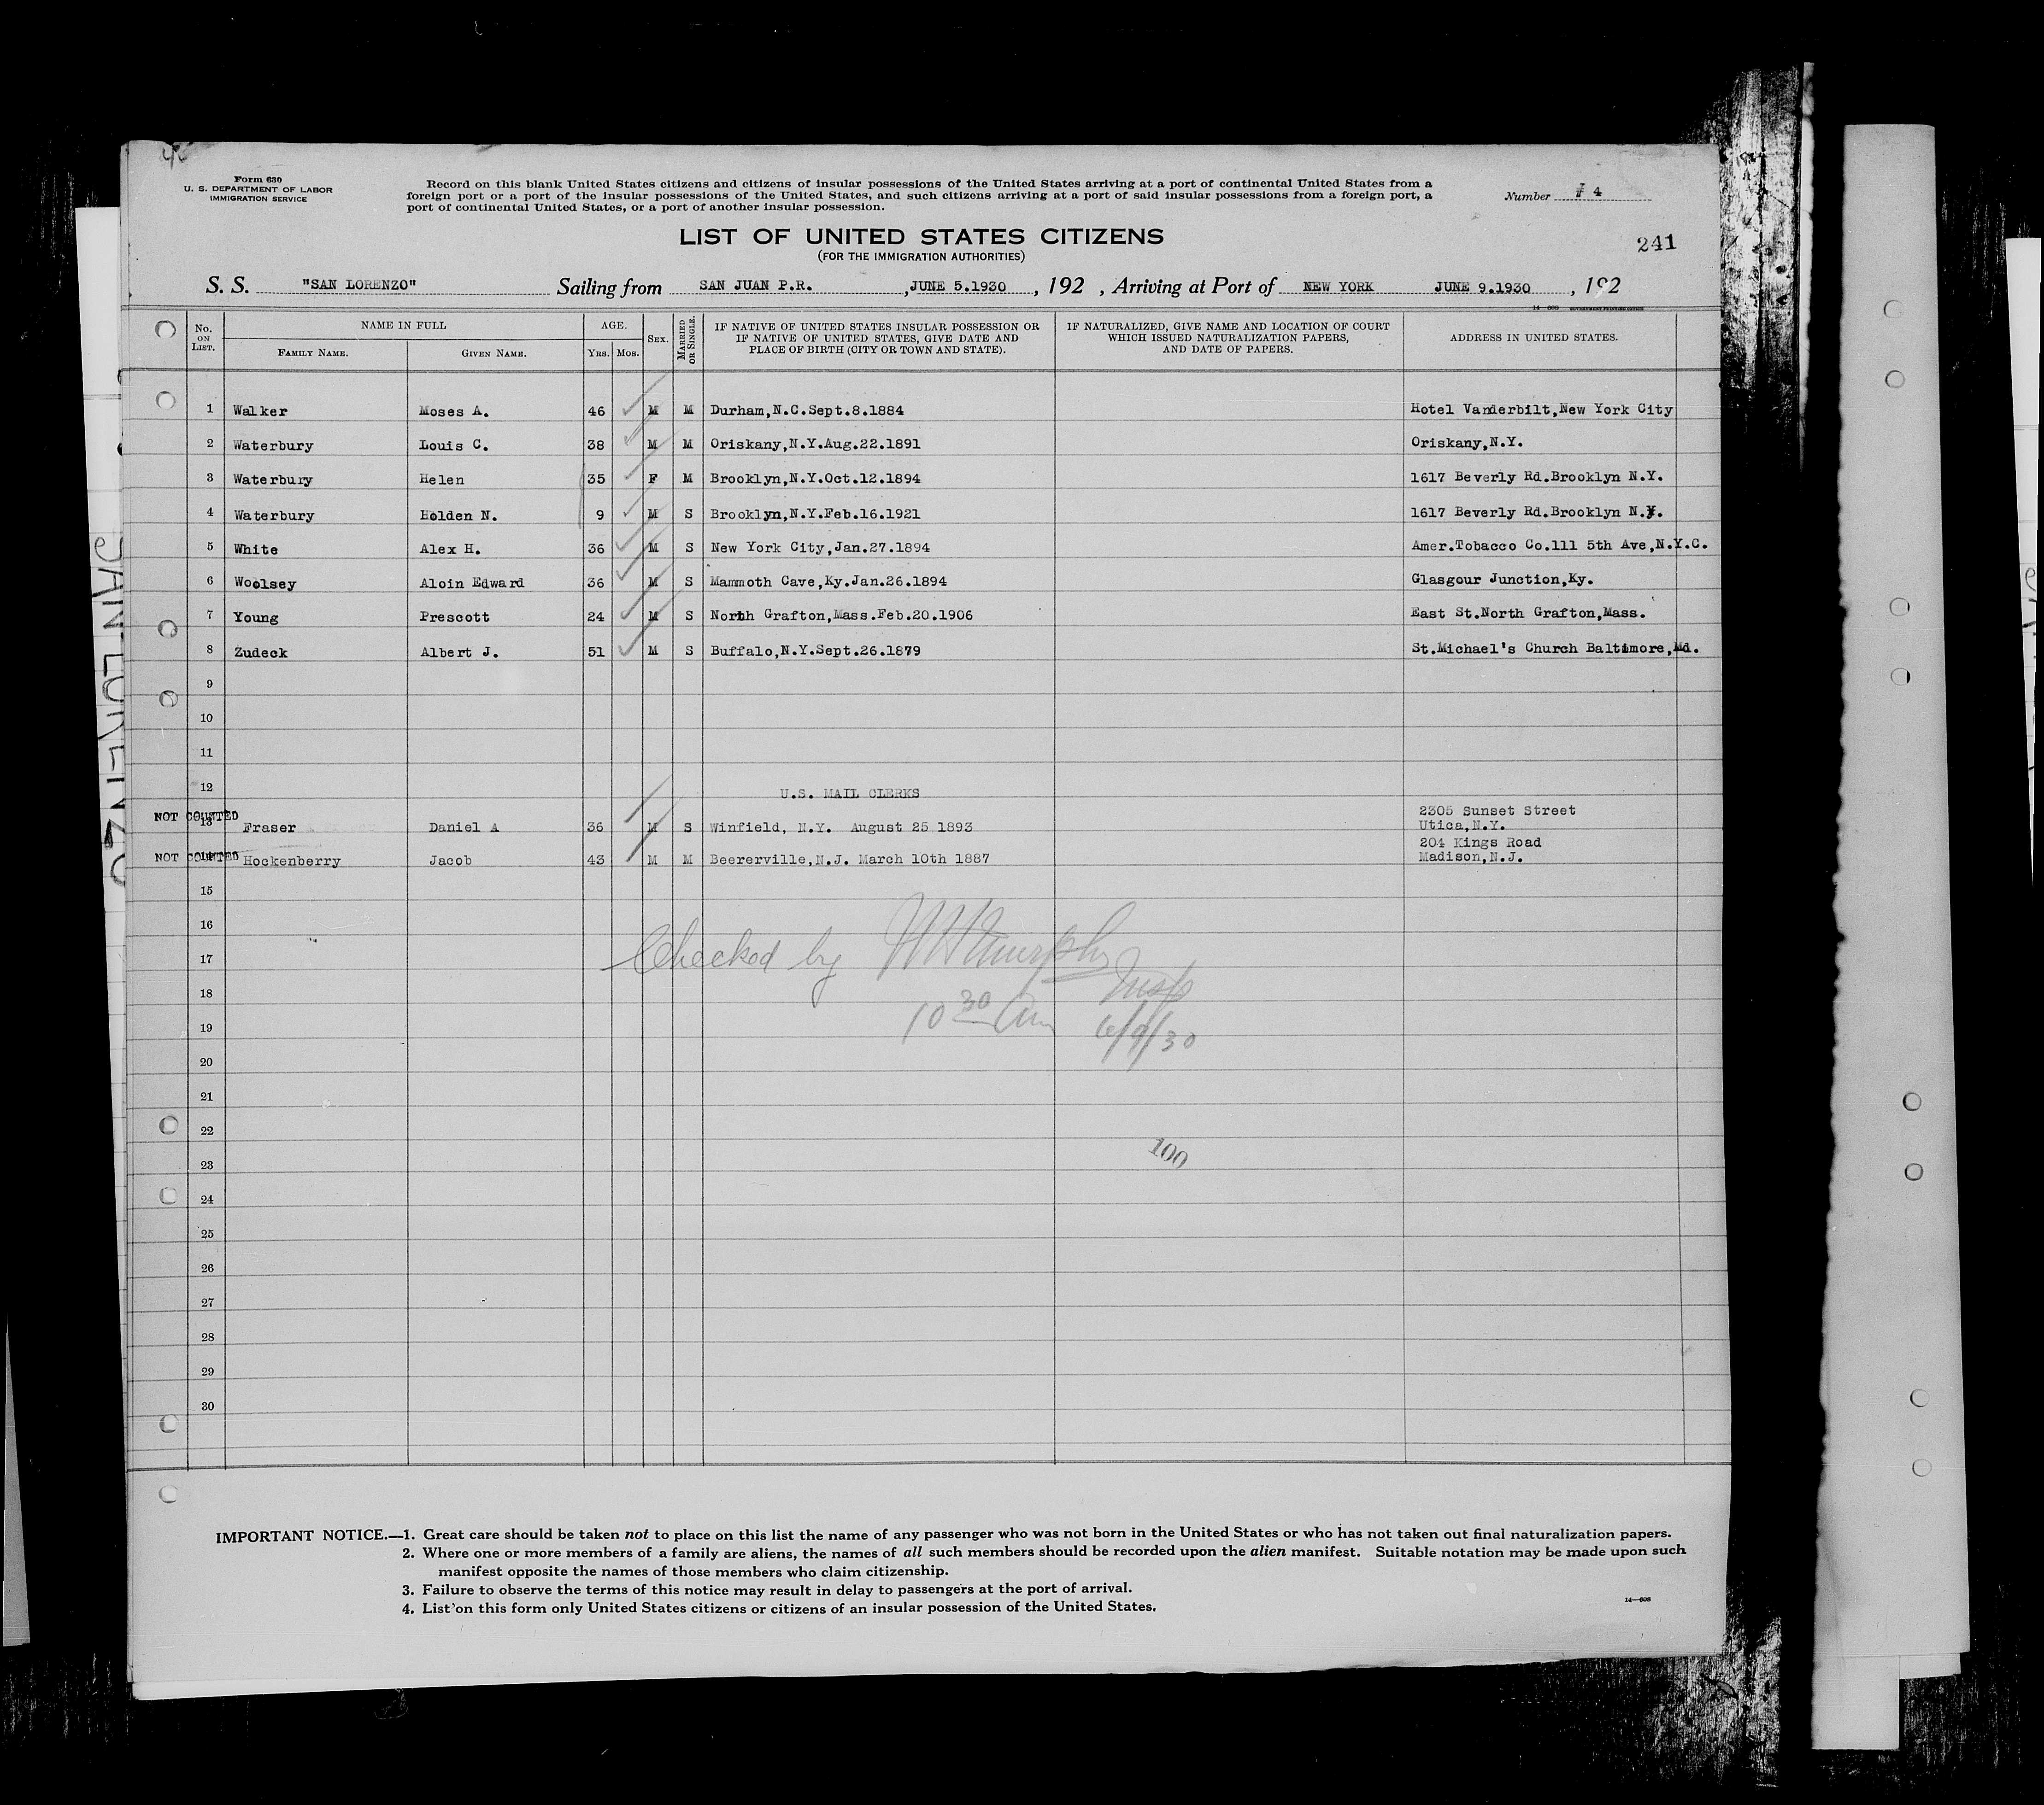 Form 630
U. S. DEPARTMENT OF LABOR
IMMIGRATION SERVICE
Record on this blank United States citizens and citizens of insular possessions of the United States arriving at a port of continental United States from a
foreign port or a port of the insular possessions of the United States, and such citizens arriving at a port of said insular possessions from a foreign port, a
port of continental United States, or a port of another insular possession.
Number # 4
LIST OF UNITED STATES CITIZENS
(FOR THE IMMIGRATION AUTHORITIES)
241
S. S. "SAN LORENZO" Sailing from SAN JUAN P.R. , JUNE 5.1930 , 192 , Arriving at Port of NEW YORK JUNE 9.1930 , 192
No. ON LIST. NAME IN FULL FAMILY NAME. GIVEN NAME. AGE. YRS. MOS. SEX. MARRIED OR SINGLE. IF NATIVE OF UNITED STATES INSULAR POSSESSION OR IF NATIVE OF UNITED STATES, GIVE DATE AND PLACE OF BIRTH (CITY OR TOWN AND STATE). IF NATURALIZED, GIVE NAME AND LOCATION OF COURT WHICH ISSUED NATURALIZATION PAPERS, AND DATE OF PAPERS. ADDRESS IN UNITED STATES.
1 Walker Moses A. 46 M M Durham,N.C.Sept.8.1884 Hotel Vanderbilt,New York City
2 Waterbury Louis C. 38 M M Oriskany,N.Y.Aug.22.1891 Oriskany,N.Y.
3 Waterbury Helen 35 F M Brooklyn,N.Y.Oct.12.1894 1617 Beverly Rd.Brooklyn N.Y.
4 Waterbury Holden N. 9 M S Brooklyn,N.Y.Feb.16.1921 1617 Beverly Rd.Brooklyn N.Y.
5 White Alex H. 36 M S New York City,Jan.27.1894 Amer.Tobacco Co.111 5th Ave,N.Y.C.
6 Woolsey Aloin Edward 36 M S Mammoth Cave,Ky.Jan.26.1894 Glasgour Junction,Ky.
7 Young Prescott 24 M S North Grafton,Mass.Feb.20.1906 East St.North Grafton,Mass.
8 Zudeck Albert J. 51 M S Buffalo,N.Y.Sept.26.1879 St.Michael's Church Baltimore,Md.
9
10
11
12
U.S. MAIL CLERKS
NOT COUNTED 13 Fraser Daniel A 36 M S Winfield, N.Y. August 25 1893 2305 Sunset Street Utica,N.Y.
NOT COUNTED 14 Hockenberry Jacob 43 M M Beererville,N.J. March 10th 1887 204 Kings Road Madison,N.J.
15
16
17
Checked by W H Murphy
Insp
18
10 30 Am 6/9/30
19
20
21
22
100
23
24
25
26
27
28
29
30
IMPORTANT NOTICE.—1. Great care should be taken not to place on this list the name of any passenger who was not born in the United States or who has not taken out final naturalization papers.
2. Where one or more members of a family are aliens, the names of all such members should be recorded upon the alien manifest. Suitable notation may be made upon such
manifest opposite the names of those members who claim citizenship.
3. Failure to observe the terms of this notice may result in delay to passengers at the port of arrival.
4. List on this form only United States citizens or citizens of an insular possession of the United States.
SAN LORENZO